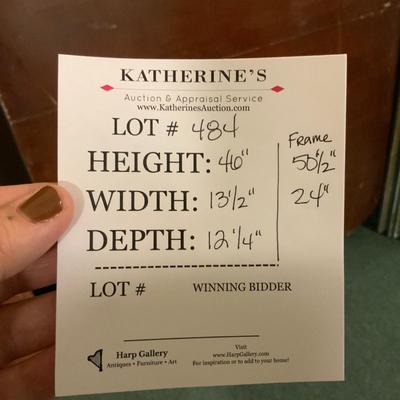 KATHERINE'S
Auction & Appraisal Service
www.KatherinesAuction.com
LOT # 484
Frame
HEIGHT: 46" 50 1/2"
WIDTH: 13 1/2" 24"
DEPTH: 12 1/4"
LOT # WINNING BIDDER
Harp Gallery
Antiques • Furniture • Art
Visit
www.HarpGallery.com
For inspiration or to add to your home!